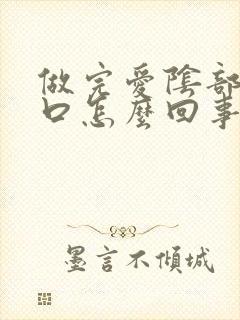 做完愛陰部
口怎麼回事
墨言不傾城